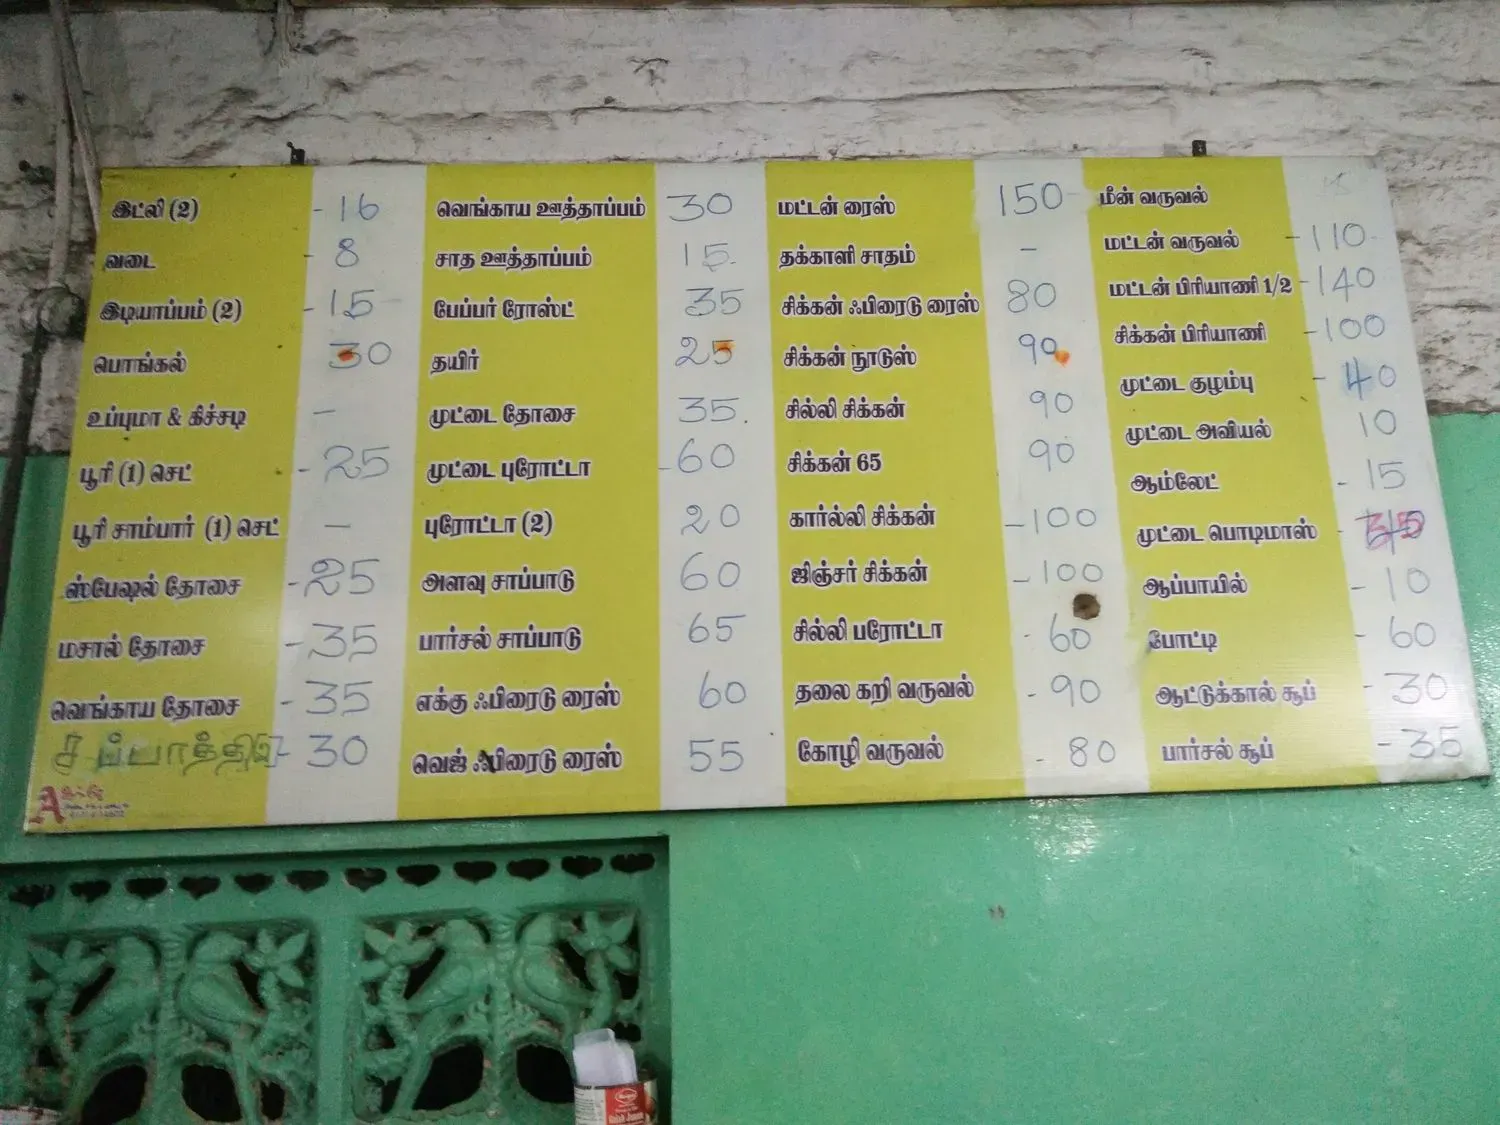 இட்லி (2) - 16
வடை - 8
இடியாப்பம் (2) - 15
பொங்கல் 30
உப்புமா & கிச்சடி -
பூரி (1) செட் - 25
பூரி சாம்பார் (1) செட் -
ஸ்பேஷல் தோசை - 25
மசால் தோசை - 35
வெங்காய தோசை - 35
சப்பாத்தி - 30
வெங்காய ஊத்தாப்பம் 30
சாத ஊத்தாப்பம் 15.
பேப்பர் ரோஸ்ட் 35
தயிர் 25
முட்டை தோசை 35.
முட்டை புரோட்டா - 60
புரோட்டா (2) 20
அளவு சாப்பாடு 60
பார்சல் சாப்பாடு 65
எக்கு ஃபிரைடு ரைஸ் 60
வெஜ் ஃபிரைடு ரைஸ் 55
மட்டன் ரைஸ் 150
தக்காளி சாதம் -
சிக்கன் ஃபிரைடு ரைஸ் 80
சிக்கன் நூடுஸ் 90
சில்லி சிக்கன் 90
சிக்கன் 65 90
கார்ல்லி சிக்கன் - 100
ஜிஞ்சர் சிக்கன் - 100
சில்லி பரோட்டா - 60
தலை கறி வருவல் - 90
கோழி வருவல் - 80
மீன் வருவல்
மட்டன் வருவல் - 110
மட்டன் பிரியாணி 1/2 - 140
சிக்கன் பிரியாணி - 100
முட்டை குழம்பு - 40
முட்டை அவியல் 10
ஆம்லேட் - 15
முட்டை பொடிமாஸ் -
ஆப்பாயில் - 10
போட்டி - 60
ஆட்டுக்கால் சூப் - 30
பார்சல் சூப் - 35